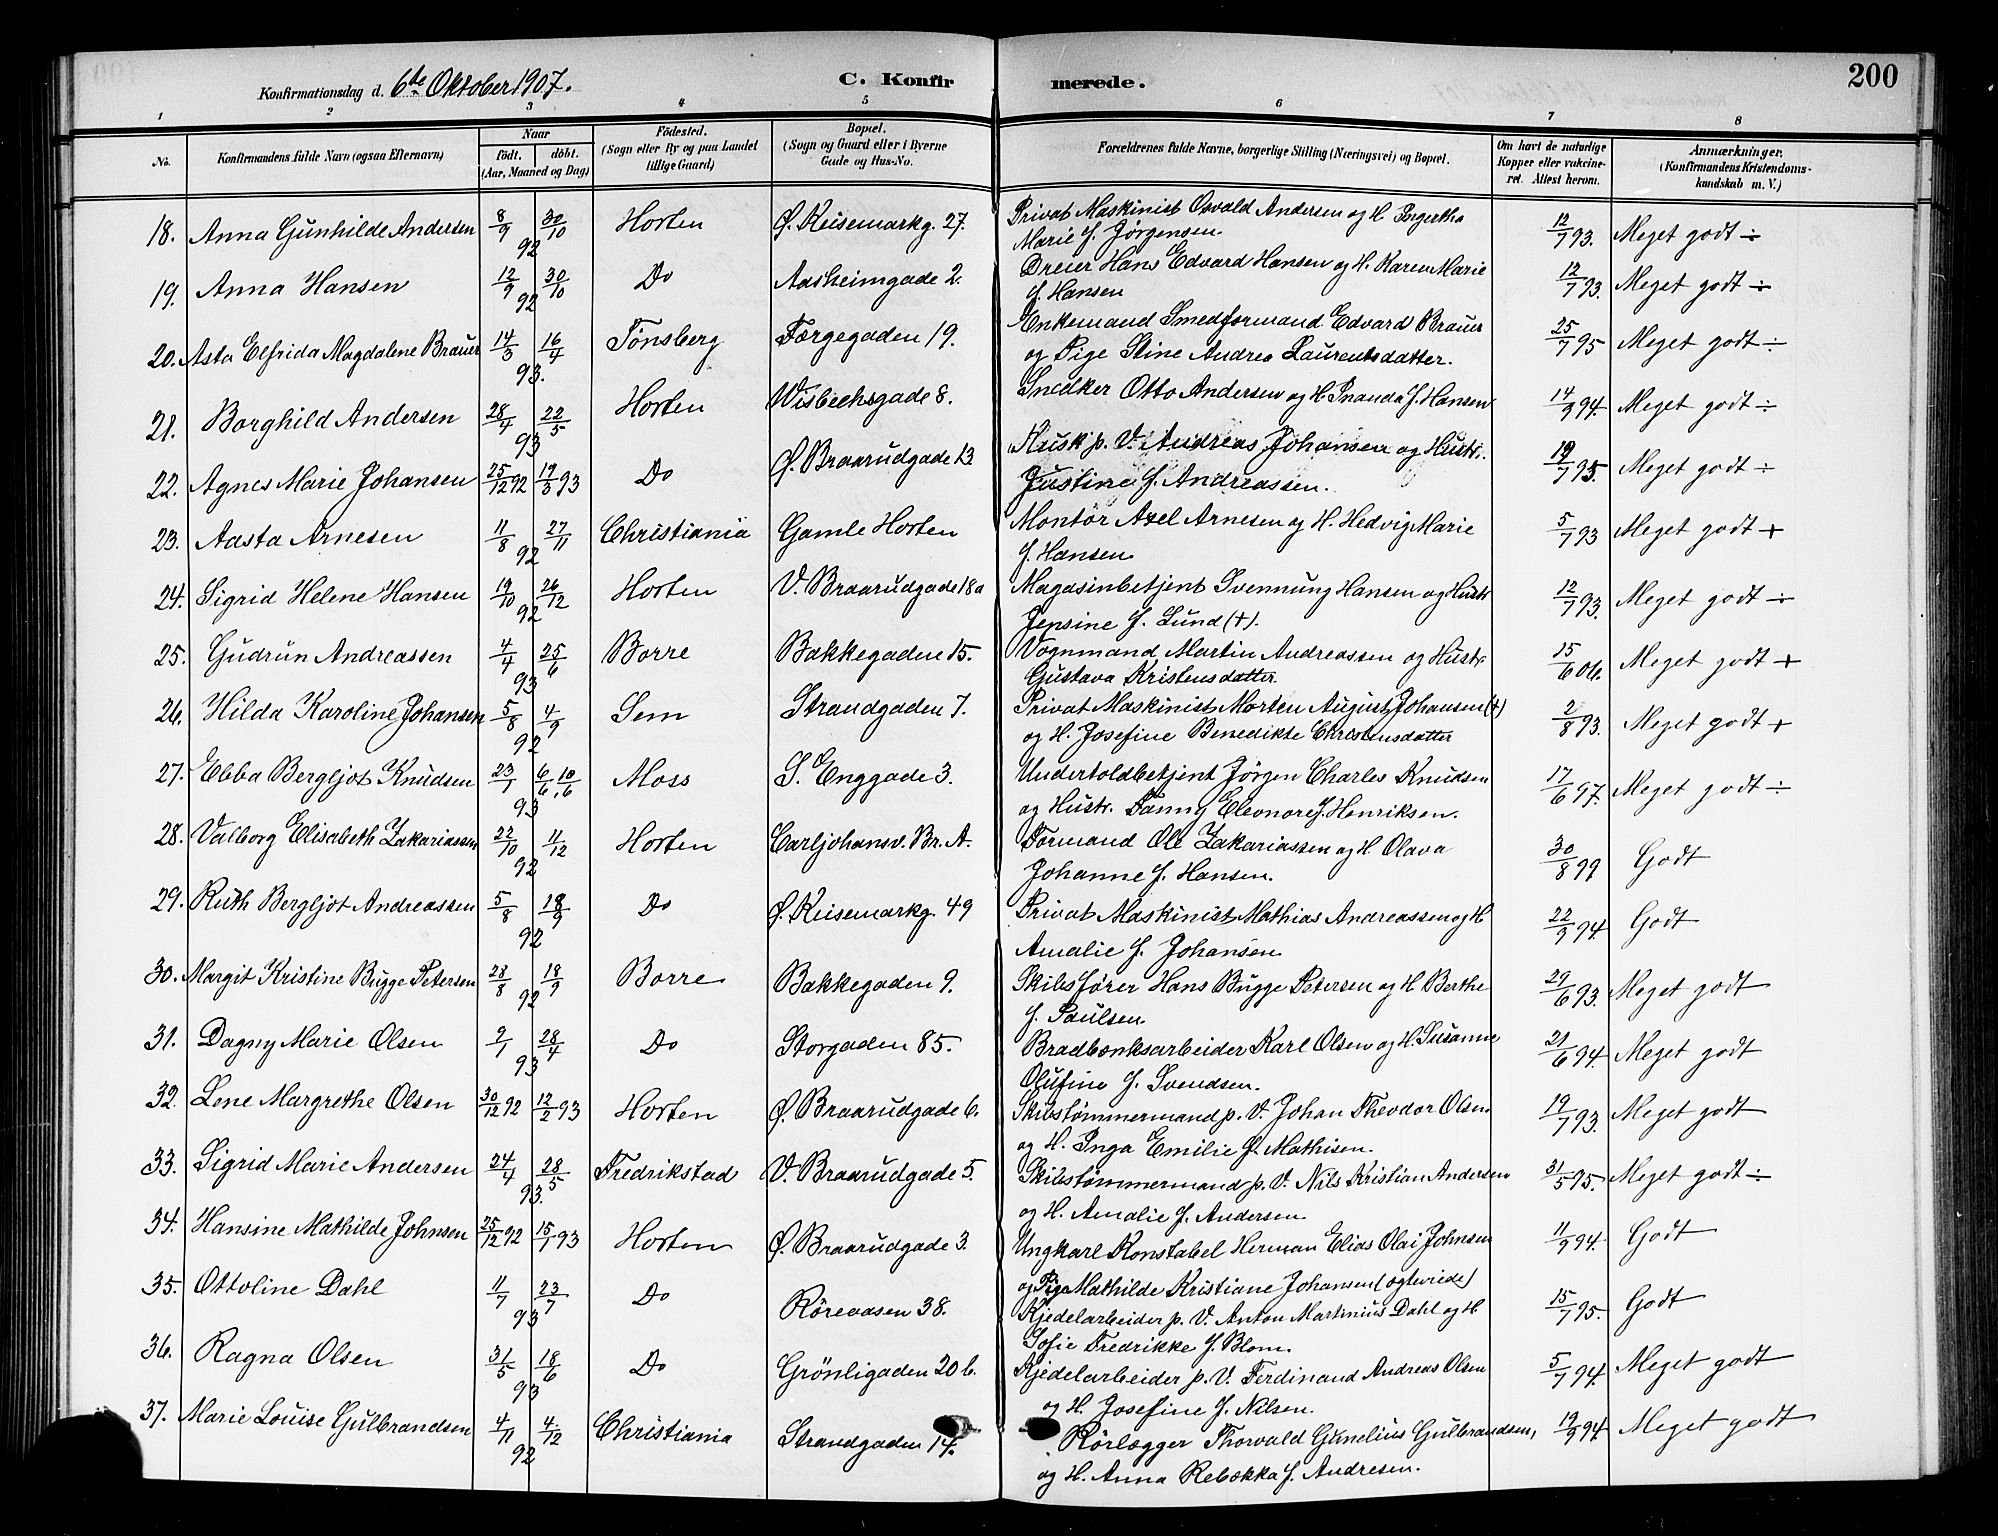 Konfirmationsdag d. 6te Oktober 1907. C. Konfir merede. 200
1 2 3 4 5 6 7 8
No. Konfirmandens fulde Navn (ogsaa Efternavn) Naar født. døbt. (Aar, Maaned og Dag) Fødested. (Sogn eller By og paa Landet tillige Gaard) Bopæl. (Sogn og Gaard eller i Byerne Gade og Hus-No. Forældrenes fulde Navne, borgerlige Stilling (Næringsvei) og Bopæl. Om havt de naturlige Kopper eller vakcineret. Attest herom. Anmærkninger. (Konfirmandens Kristendomskundskab m. V.)
18. Anna Gunhilde Andersen 8/9 92 30/10 Horten Ø. Keisemarkg. 27. Privat Maskinist Osvald Andersen og H. Ingertha 12/7 93. Meget godt ÷
Marie f. Jørgensen.
19. Anna Hansen 12/9 92 30/10 Do Aasheimgade 2. Dreier Hans Edvard Hansen og H. Karen Marie 12/7 93. Meget godt ÷
f. Hansen
20. Asta Elfrida Magdalene Brauer 14/3 93. 16/4 Tønsberg Færgegaden 19. Enkemand Smedformand Edvard Brauer 25/7 95 Meget godt ÷
og Pige Stine Andrea Laurentsdatter.
21. Borghild Andersen 28/4 93 22/5 Horten Wisbechsgade 8. Snedker Otto Andersen og H. Inanda f. Hansen 14/9 94. Meget godt ÷
22. Agnes Marie Johansen 25/12 92 19/3 93 Do Ø. Braarudgade 13 Husk p. V. Andreas Johansen og Hustr. 19/7 95. Meget godt ÷
Justine f. Andreassen.
23. Aasta Arnesen 11/8 92 27/11 Christiania Gamle Horten Montör Axel Arnesen og H. Hedvig Marie 5/7 93 Meget godt +
f. Hansen.
24. Sigrid Helene Hansen 19/10 92 26/12 Horten V. Braarudgade 18a Magasinbetjent Svennung Hansen og Hustr 12/7 93. Meget godt ÷
Jensine f. Lund (+).
25. Gudrun Andreassen 4/4 93 25/6 Borre Bakkegaden 15. Vognmand Martin Andreassen og Hustr 15/6 06. Meget godt +
Gustava Kristensdatter
26. Hilda Karoline Johansen 5/8 92 4/9 Sem Strandgaden 7. Privat Maskinist Morten August Johansen (+) 2/8 93. Meget godt +
og H. Josefine Benedikte Christensdatter
27. Ebba Bergljot Knudsen 23/1 93 6/6. 10/6 Moss S. Enggade 3. Undertoldbetjent Jørgen Charles Knudsen 17/6 97. Meget godt ÷
og Hustr. Fanny Eleonore f. Henriksen.
28. Valborg Elisabeth Zakariassen 22/10 92 11/12 Horten Carljohansv. Br. A. Formand Ole Zakariassen og H Olava 30/8 99 Godt
Johanne f. Hansen.
29. Ruth Bergljot Andreassen 5/8 92 18/9 Do Ø. Keisemarkg. 49 Privat Maskinist Mathias Andreassen og H 22/9 94. Godt
Amalie f. Johansen.
30. Margit Kristine Bugge Petersen 28/8 92 18/9 Borre Bakkegaden 9. Skibsfører Hans Bugge Petersen og H Berthe 29/6 93. Meget godt
f. Paulsen.
31. Dagny Marie Olsen 9/1 93 28/4 Do Storgaden 85. Bradbænksarbeider Karl Olsen og H. Susanne 21/6 94. Meget godt
Olufine f. Svendsen.
32. Lene Margrethe Olsen 30/12 92 12/2 93 Horten Ø. Braarudgade 6. Skibstømmermand p. V. Johan Theodor Olsen 19/7 93. Meget godt
og H. Inga Emilie f. Mathisen.
33. Sigrid Marie Andersen 24/4 93. 28/5 Fredrikstad V. Braarudgade 5. Skibstømmermand p. V. Nils Kristian Andersen 31/5 95. Meget godt ÷
og H. Amalie f. Andersen.
34. Hansine Mathilde Johnsen 25/12 92 15/1 93 Horten Ø. Braarudgade 3. Ungkarl Konstabel Herman Elias Olai Johnsen 11/9 94. Godt
og Pige Mathilde Kristiane Johansen (ægteviede)
35. Ottoline Dahl 11/7 93 23/7 Do Rörevasen 38. Kjedelarbeider p. V. Anton Martinius Dahl og H 15/7 95. Godt
Sofie Fredrikke f. Blom.
36. Ragna Olsen 31/5 93 18/6 Do Grönligaden 20 b. Kjedelarbeider p. V. Ferdinand Andreas Olsen 5/7 94. Meget godt
og H. Josefine f. Nilsen.
37. Marie Louise Gulbrandsen 4/11 92 4/12 Christiania Strandgaden 14. Rörlægger Thorvald Gunelius Gulbrandsen, 19/9 94. Meget godt
og H. Anna Rebækka f. Andresen.